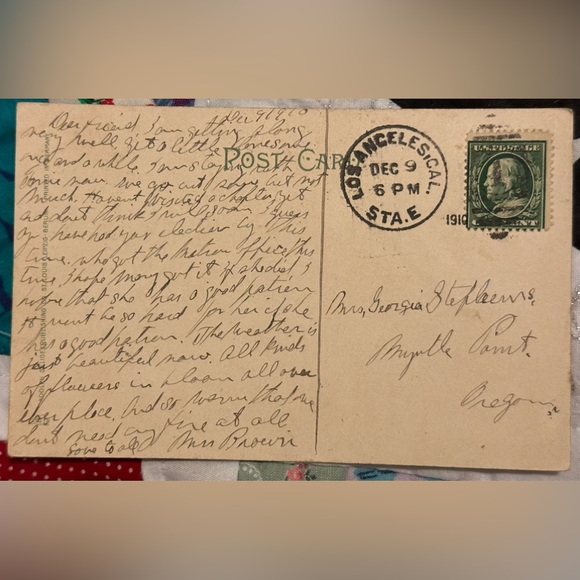 Dec 9 1910
Dear friend, I am getting along
very well get a little
once and a while. I am staying with
now. We go out some but not
much. Havent visited a chapter yet
and dont think I will soon. I guess
you have had your election by this
time, who got the Matron office this
time, I hope Mary got it if she did I
that she has a good patron
it wont be so hard for her if she
has a good patron. The weather is
just beautiful now. All kinds
of flowers in bloom all over
the place and so warm that we
dont need any fire at all.
Love to all Mrs Brown
POST CARD
LOS ANGELES, CAL.
DEC 9
6 PM
STA. E
1910
U.S. POSTAGE
CENT
Mrs, Georgia Stephens,
Myrtle Point.
Oregon,